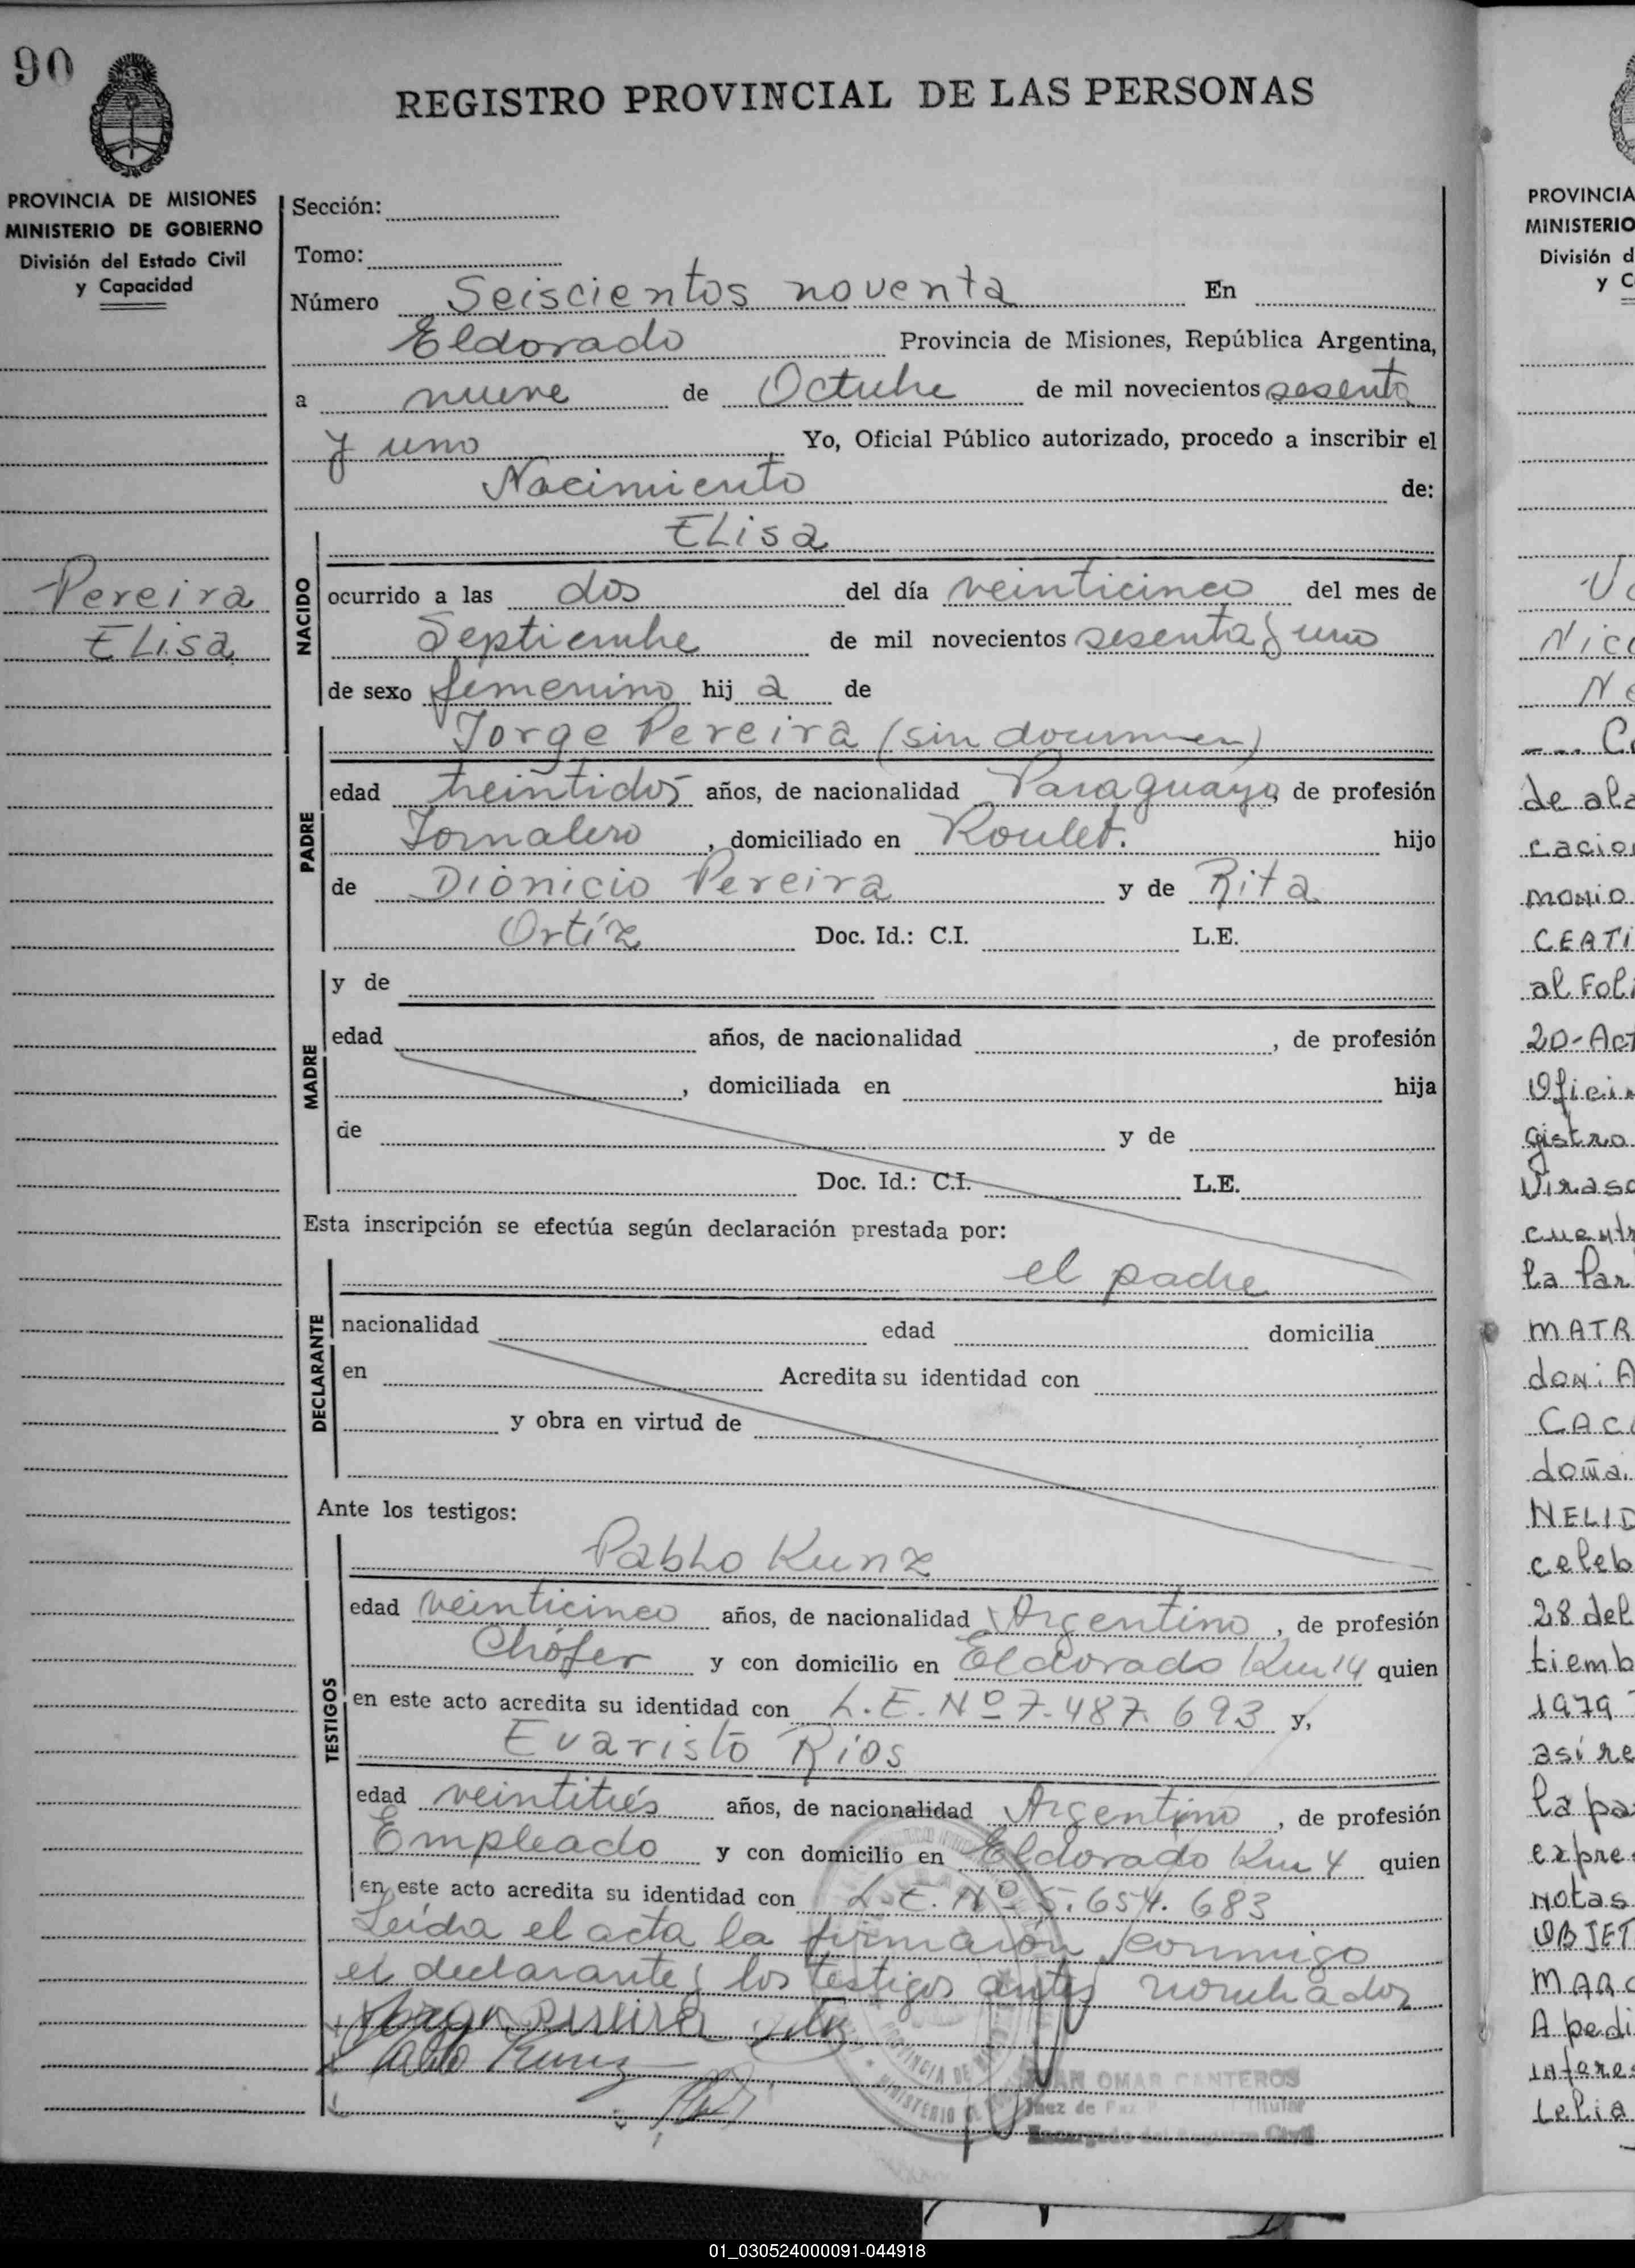 90
REGISTRO PROVINCIAL DE LAS PERSONAS
PROVINCIA DE MISIONES
MINISTERIO DE GOBIERNO
División del Estado Civil
y Capacidad
Pereira
Elisa
Sección:
Tomo:
Número Seiscientos noventa En
Eldorado Provincia de Misiones, República Argentina,
a nueve de Octubre de mil novecientos sesenta
y uno Yo, Oficial Público autorizado, procedo a inscribir el
Nacimiento de:
NACIDO
Elisa
ocurrido a las dos del día veinticinco del mes de
Septiembre de mil novecientos sesenta y uno
de sexo femenino hij a de
PADRE
Jorge Pereira (sin documen)
edad treintidós años, de nacionalidad Paraguaya, de profesión
Jornalero, domiciliado en Roulet. hijo
de Dionicio Pereira y de Rita
Ortíz Doc. Id.: C.I. L.E.
MADRE
y de
edad años, de nacionalidad , de profesión
, domiciliada en hija
de y de
Doc. Id.: C.I. L.E.
Esta inscripción se efectúa según declaración prestada por:
DECLARANTE
el padre
nacionalidad edad domicilia
en Acredita su identidad con
y obra en virtud de
Ante los testigos:
TESTIGOS
Pablo Kunz
edad veinticinco años, de nacionalidad Argentino, de profesión
Chófer y con domicilio en Eldorado Km 14 quien
en este acto acredita su identidad con L.E. Nº 7.487.693 y,
Evaristo Rios
edad veintitrés años, de nacionalidad Argentino, de profesión
Empleado y con domicilio en Eldorado Km 4 quien
en este acto acredita su identidad con L.E. Nº 5.654.683
Leída el acta la firmaron conmigo
el declarante y los testigos antes nombrados
Jorge Pereira
Pablo Kunz
OMAR CANTEROS
Juez de Paz Titular
Encargado del Registro Civil
PROVINCIA
MINISTERIO
División d
y C
Nico
Ne
de ala
cacio
monio
al Fol
20-Act
Ofici
gistro
Viraso
cuent
la Par
MATR
doña.
NELID
celeb
28 del
tiemb
1979
así re
la pa
expre
Notas
OBJET
MARG
A pedi
intere
Lelia
01_030524000091-044918